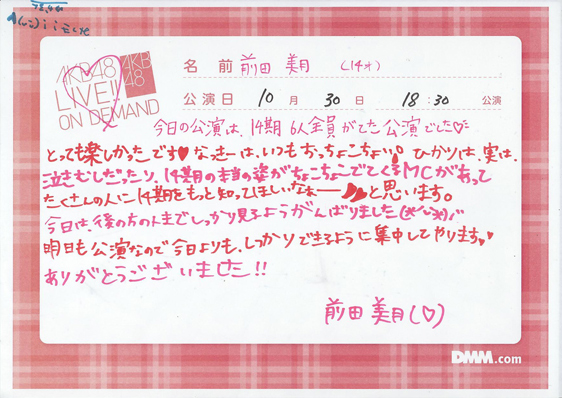 AKB48
LIVE!!
ON DEMAND
AKB
48
名 前 前田 美月 (14才)
公演日 10 月 30 日 18:30 公演
今日の公演は、14期 6人全員がでた公演でした♡
とっても楽しかったです♥なっきーは、いつもおっちょこちょい。ひかりは、実は、
泣きむしだったり、14期の本当の姿がちょこちょこでてくるMCがあって
たくさんの人に14期をもっと知ってほしいなぁー と思います。
今日は、後の方の人まてしっかり見るようがんばりました
明日も公演なので今日よりも、しっかりできるように集中してやります♥♥
ありがとうございました!!
前田 美月(♡)
DMM.com